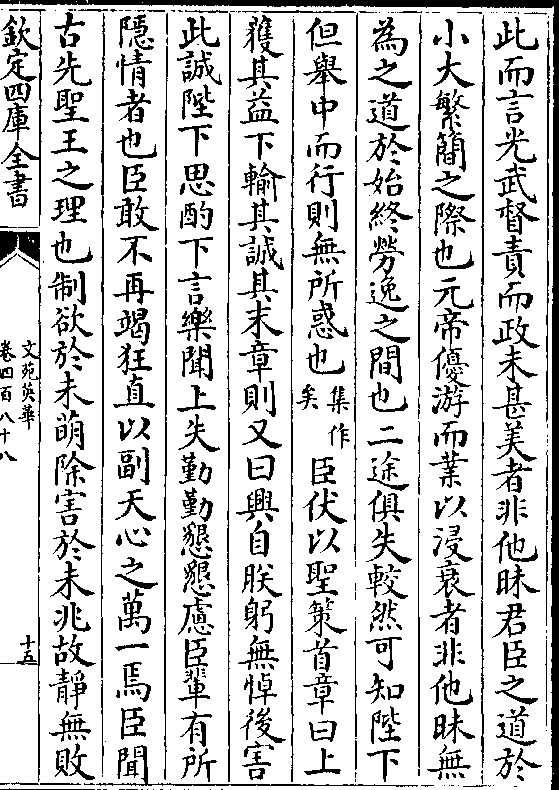 此而言光武督責而政未甚美者非他昧君臣之道於
小大繁簡之際也元帝優游而業以浸衰者非他昧無
為之道於始終勞逸之間也二途俱失較然可知陛下
但舉中而行則無所惑也集作矣臣伏以聖策首章曰上
獲其益下輸其誠其末章則又曰興自朕躬無悼後害
此誠陛下思酌下言樂聞上失勤勤懇懇慮臣輩有所
隱情者也臣敢不再竭狂直以副天心之萬一焉臣聞
古先聖王之理也制欲於未萌除害於未兆故靜無敗
欽定四庫全書
文苑英華
卷四百八十八
十五